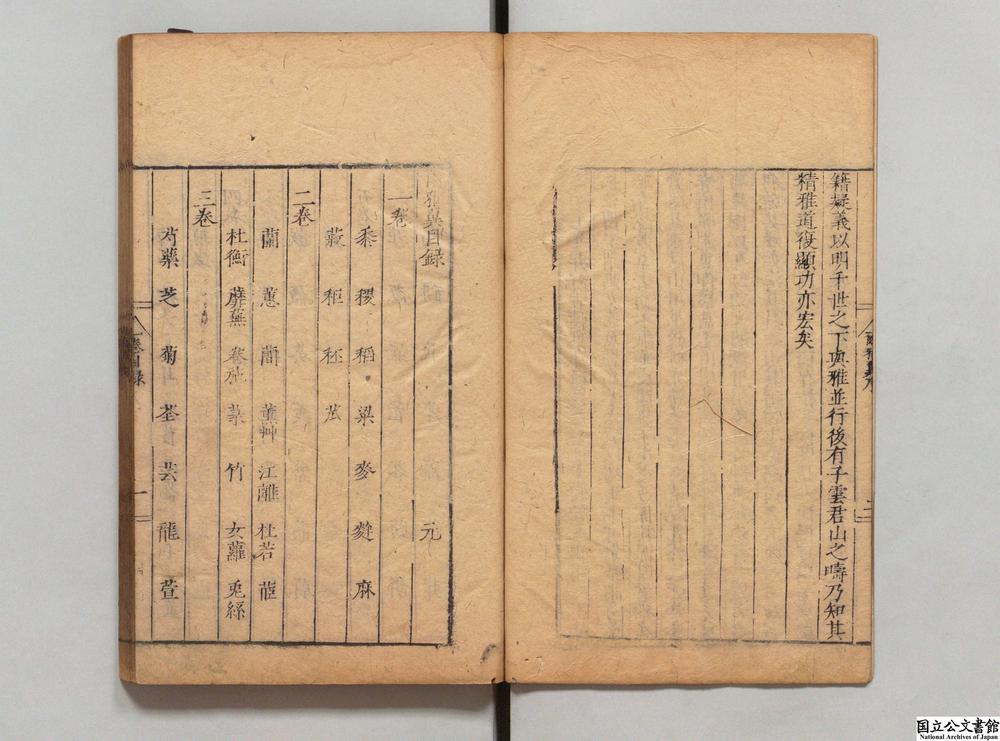 籍疑義以明千世之下與雅並行後有子雲君山之疇乃知其
精雅道復顯功亦宏矣
二
雅異目録 元
一卷
黍 稷 稻 粱 麥 麰 麻
菽 秬 秠 苽
二卷
蘭 蕙 蘭 江蘺 杜若
杜衡 蘼蕪 卷施 菉 竹 女蘿 兎絲
三卷
芍藥 芝 菊 荃 芸 龍 萱
卷目録
一
国立公文書館
National Archives of Japan